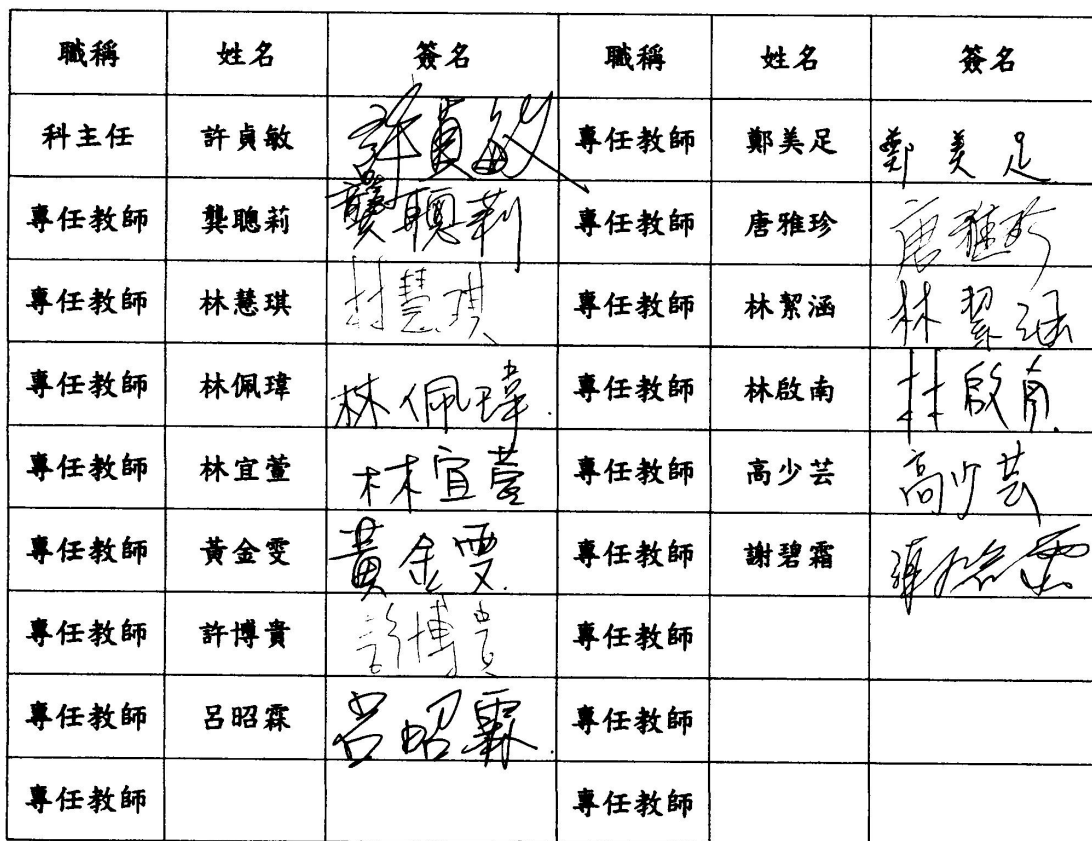 職稱 姓名 簽名 職稱 姓名 簽名
科主任 許貞敏 許貞敏 專任教師 鄭美足 鄭美足
專任教師 龔聰莉 龔聰莉 專任教師 唐雅珍 唐雅珍
專任教師 林慧琪 林慧琪 專任教師 林絮涵 林絮涵
專任教師 林佩瑋 林佩瑋. 專任教師 林啟南 林啟南.
專任教師 林宜萱 林宜萱 專任教師 高少芸 高少芸
專任教師 黃金雯 黃金雯. 專任教師 謝碧霜
專任教師 許博貴 許博貴 專任教師
專任教師 呂昭霖 呂昭霖. 專任教師
專任教師 專任教師